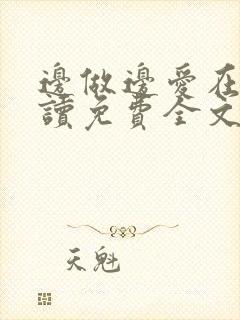 邊做邊愛在
讀免費全文
天魁